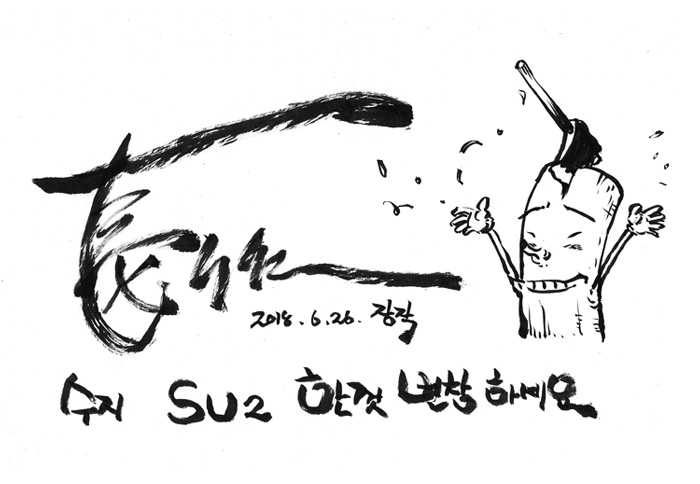 2018.6.26. 장작
수지 SU2 한껏 번창하세요